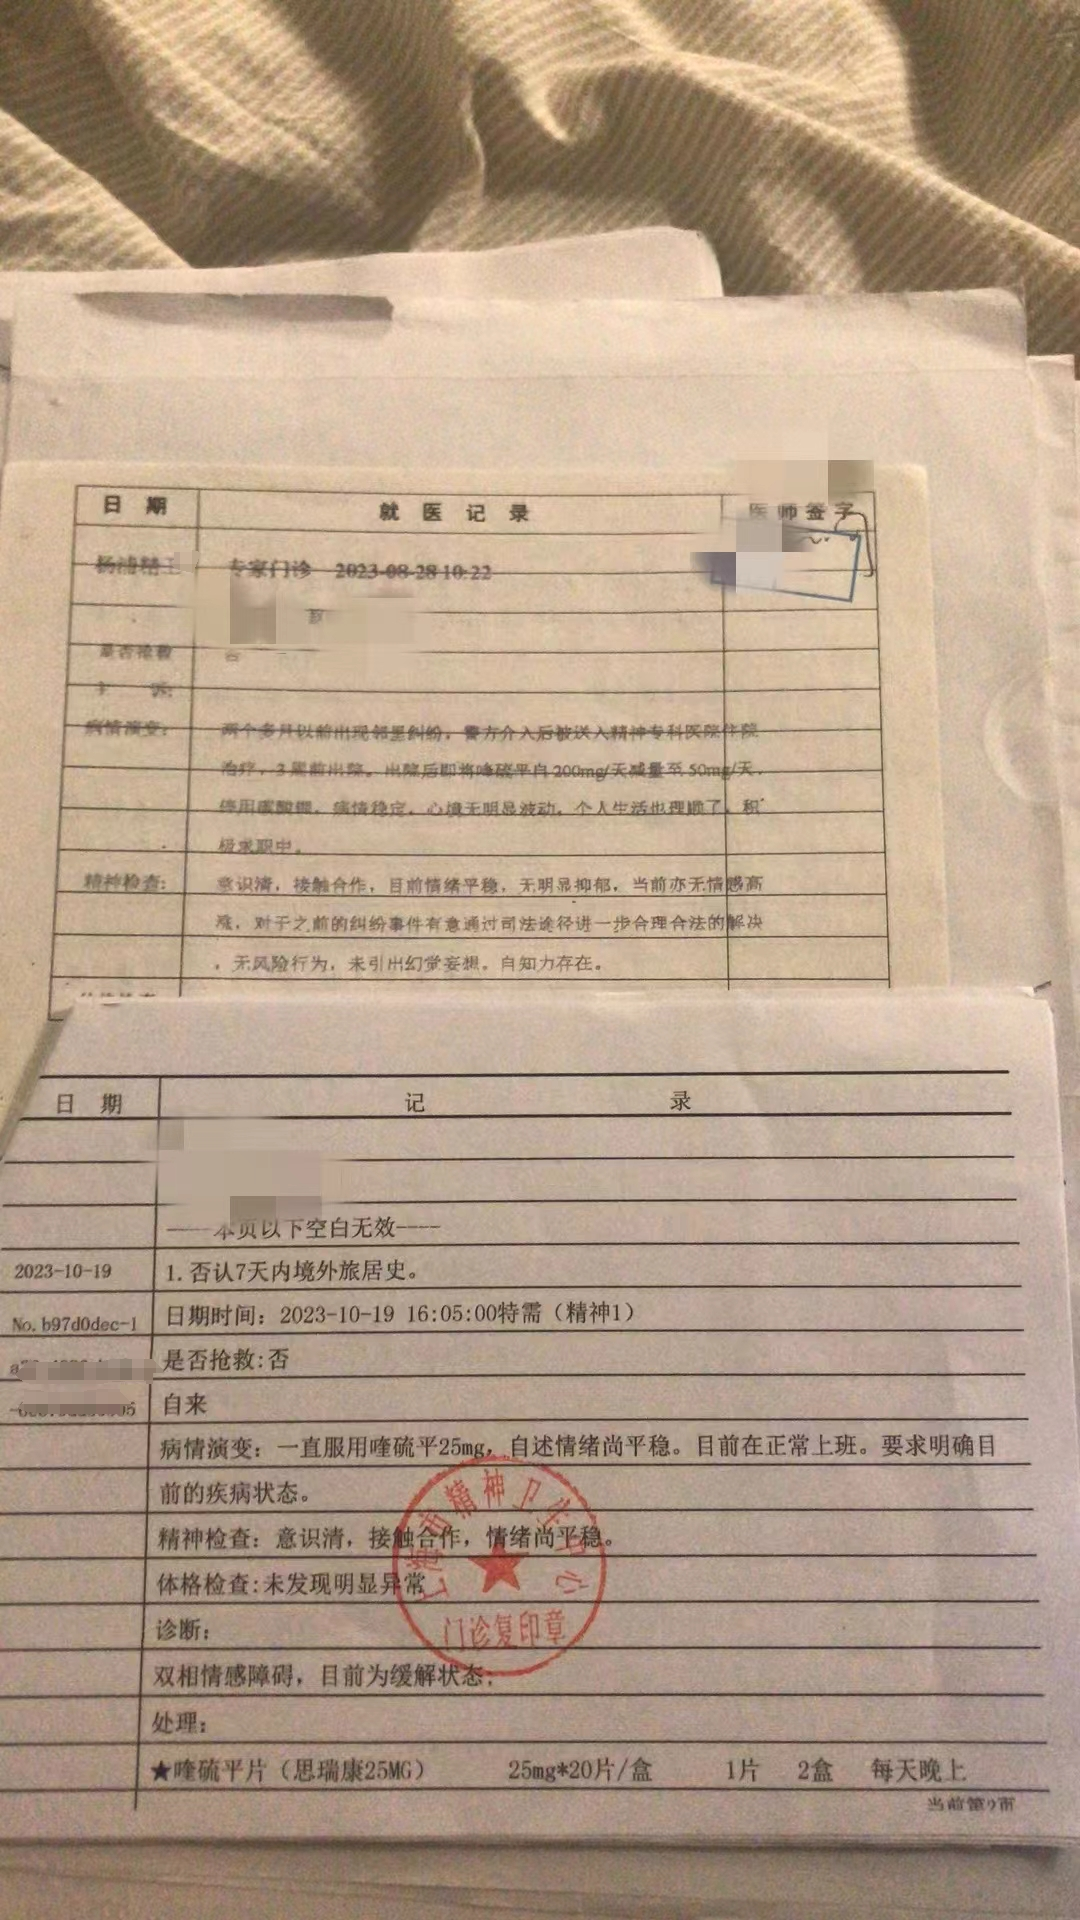 日 期 就 医 记 录 医 师 签 字
杨浦精卫 专家门诊 2023-08-28 10:22
是否抢救 否
主 诉:
病情演变: 两个多月以前出现邻里纠纷，警方介入后被送入精神专科医院住院
治疗，3周前出院。出院后即将喹硫平自200mg/天减量至50mg/天，
停用碳酸锂，病情稳定，心境无明显波动，个人生活也理顺了，积
极求职中。
精神检查: 意识清，接触合作，目前情绪平稳，无明显抑郁，当前亦无情感高
涨，对于之前的纠纷事件有意通过司法途径进一步合理合法的解决
，无风险行为，未引出幻觉妄想。自知力存在。
日 期 记 录
——本页以下空白无效----
2023-10-19 1.否认7天内境外旅居史。
No.b97d0dec-1 日期时间：2023-10-19 16:05:00特需（精神1）
是否抢救:否
自来
病情演变：一直服用喹硫平25mg，自述情绪尚平稳。目前在正常上班。要求明确目
前的疾病状态。
精神检查：意识清，接触合作，情绪尚平稳。
体格检查:未发现明显异常
诊断:
双相情感障碍，目前为缓解状态;
处理:
★喹硫平片（思瑞康25MG） 25mg*20片/盒 1片 2盒 每天晚上
当前第9页
上海市精神卫生中心
门诊复印章